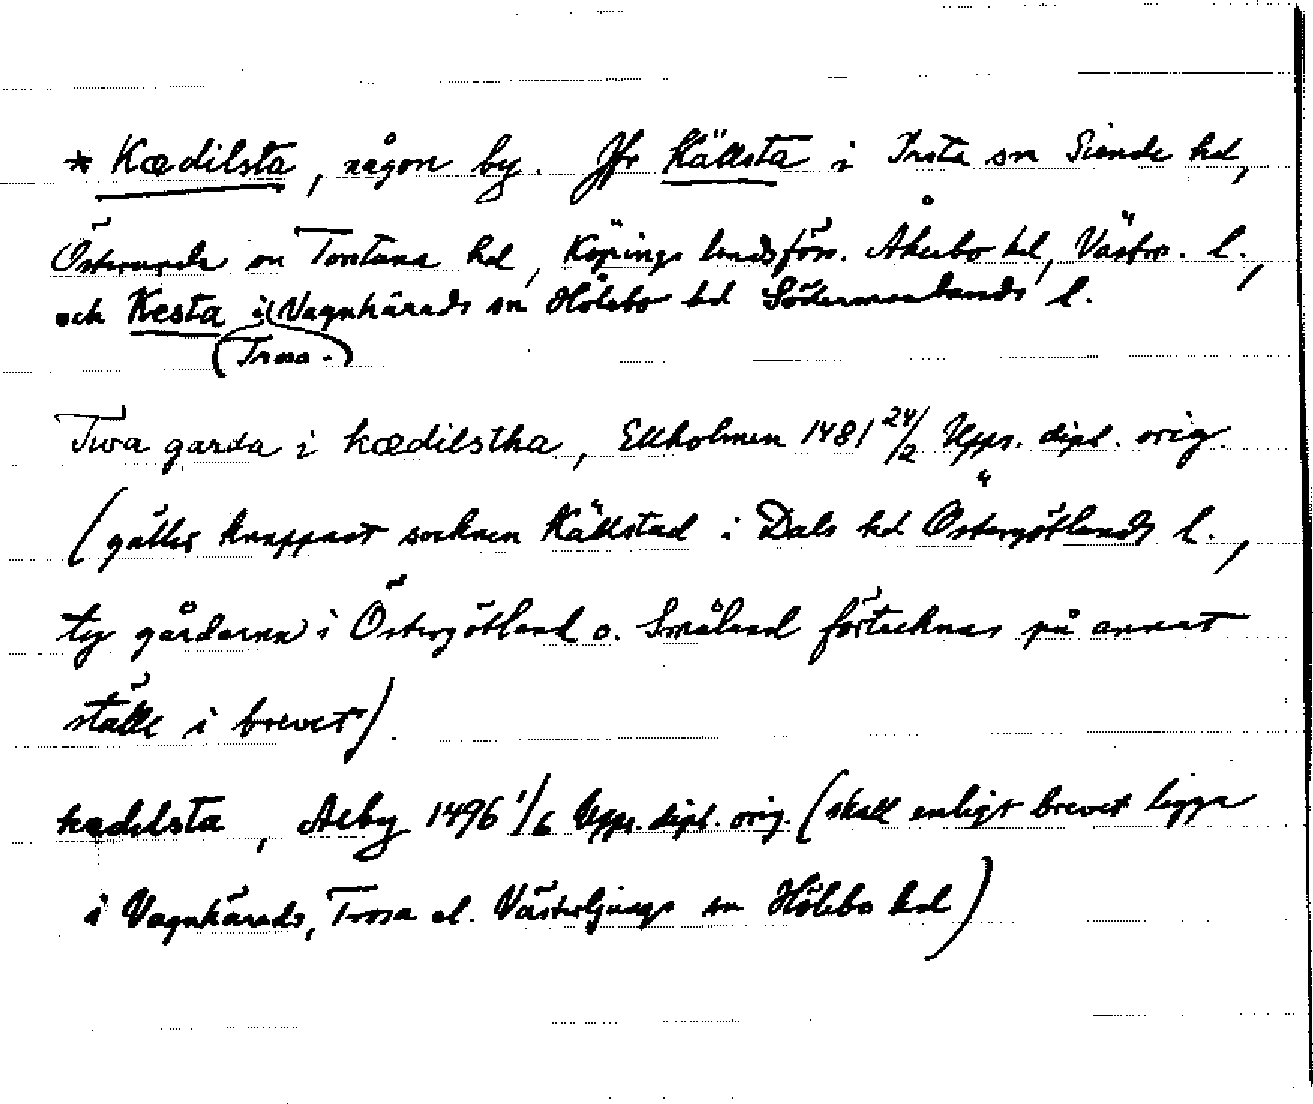 * Kædilsta, någon by. Jfr Källsta i Irsta sn Siende hd,
Österunda sn Torstuna hd, Köpings landsförs. Åkerbo hd, Västm. l.,
och Kesta i Vagnhärads sn Hölebo hd Södermanlands l.
(Trosa-)
Twa garda i kædilstha, Ekholmen 1481 24/2 Upps. dipl. orig.
(gäller knappast socknen Källstad i Dals hd Östergötlands l.,
ty gårdarna i Östergötland o. Småland förtecknas på annat
ställe i brevet).
kędilsta, Aeby 1496 1/6 Upps. dipl. orig. (skall enligt brevet ligga
i Vagnhärads, Trosa el. Västerljungs sn Hölebo hd)